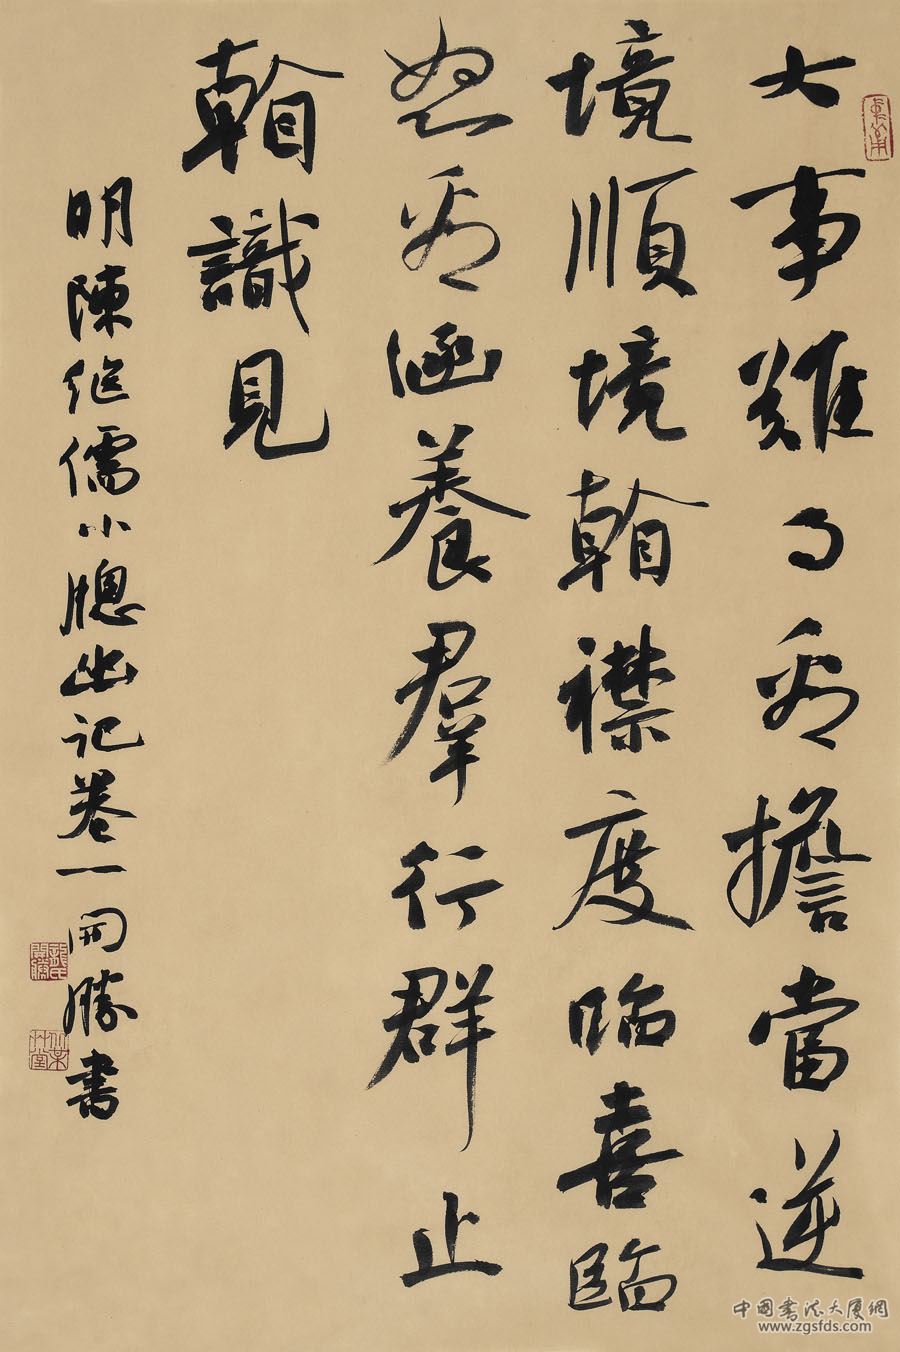 大事難事看擔當逆
境順境看襟度臨喜臨
怒看涵養羣行群止
看識見
明陳继儒小牕幽记卷一開勝書
中国书法大厦網
www.zgsfds.com